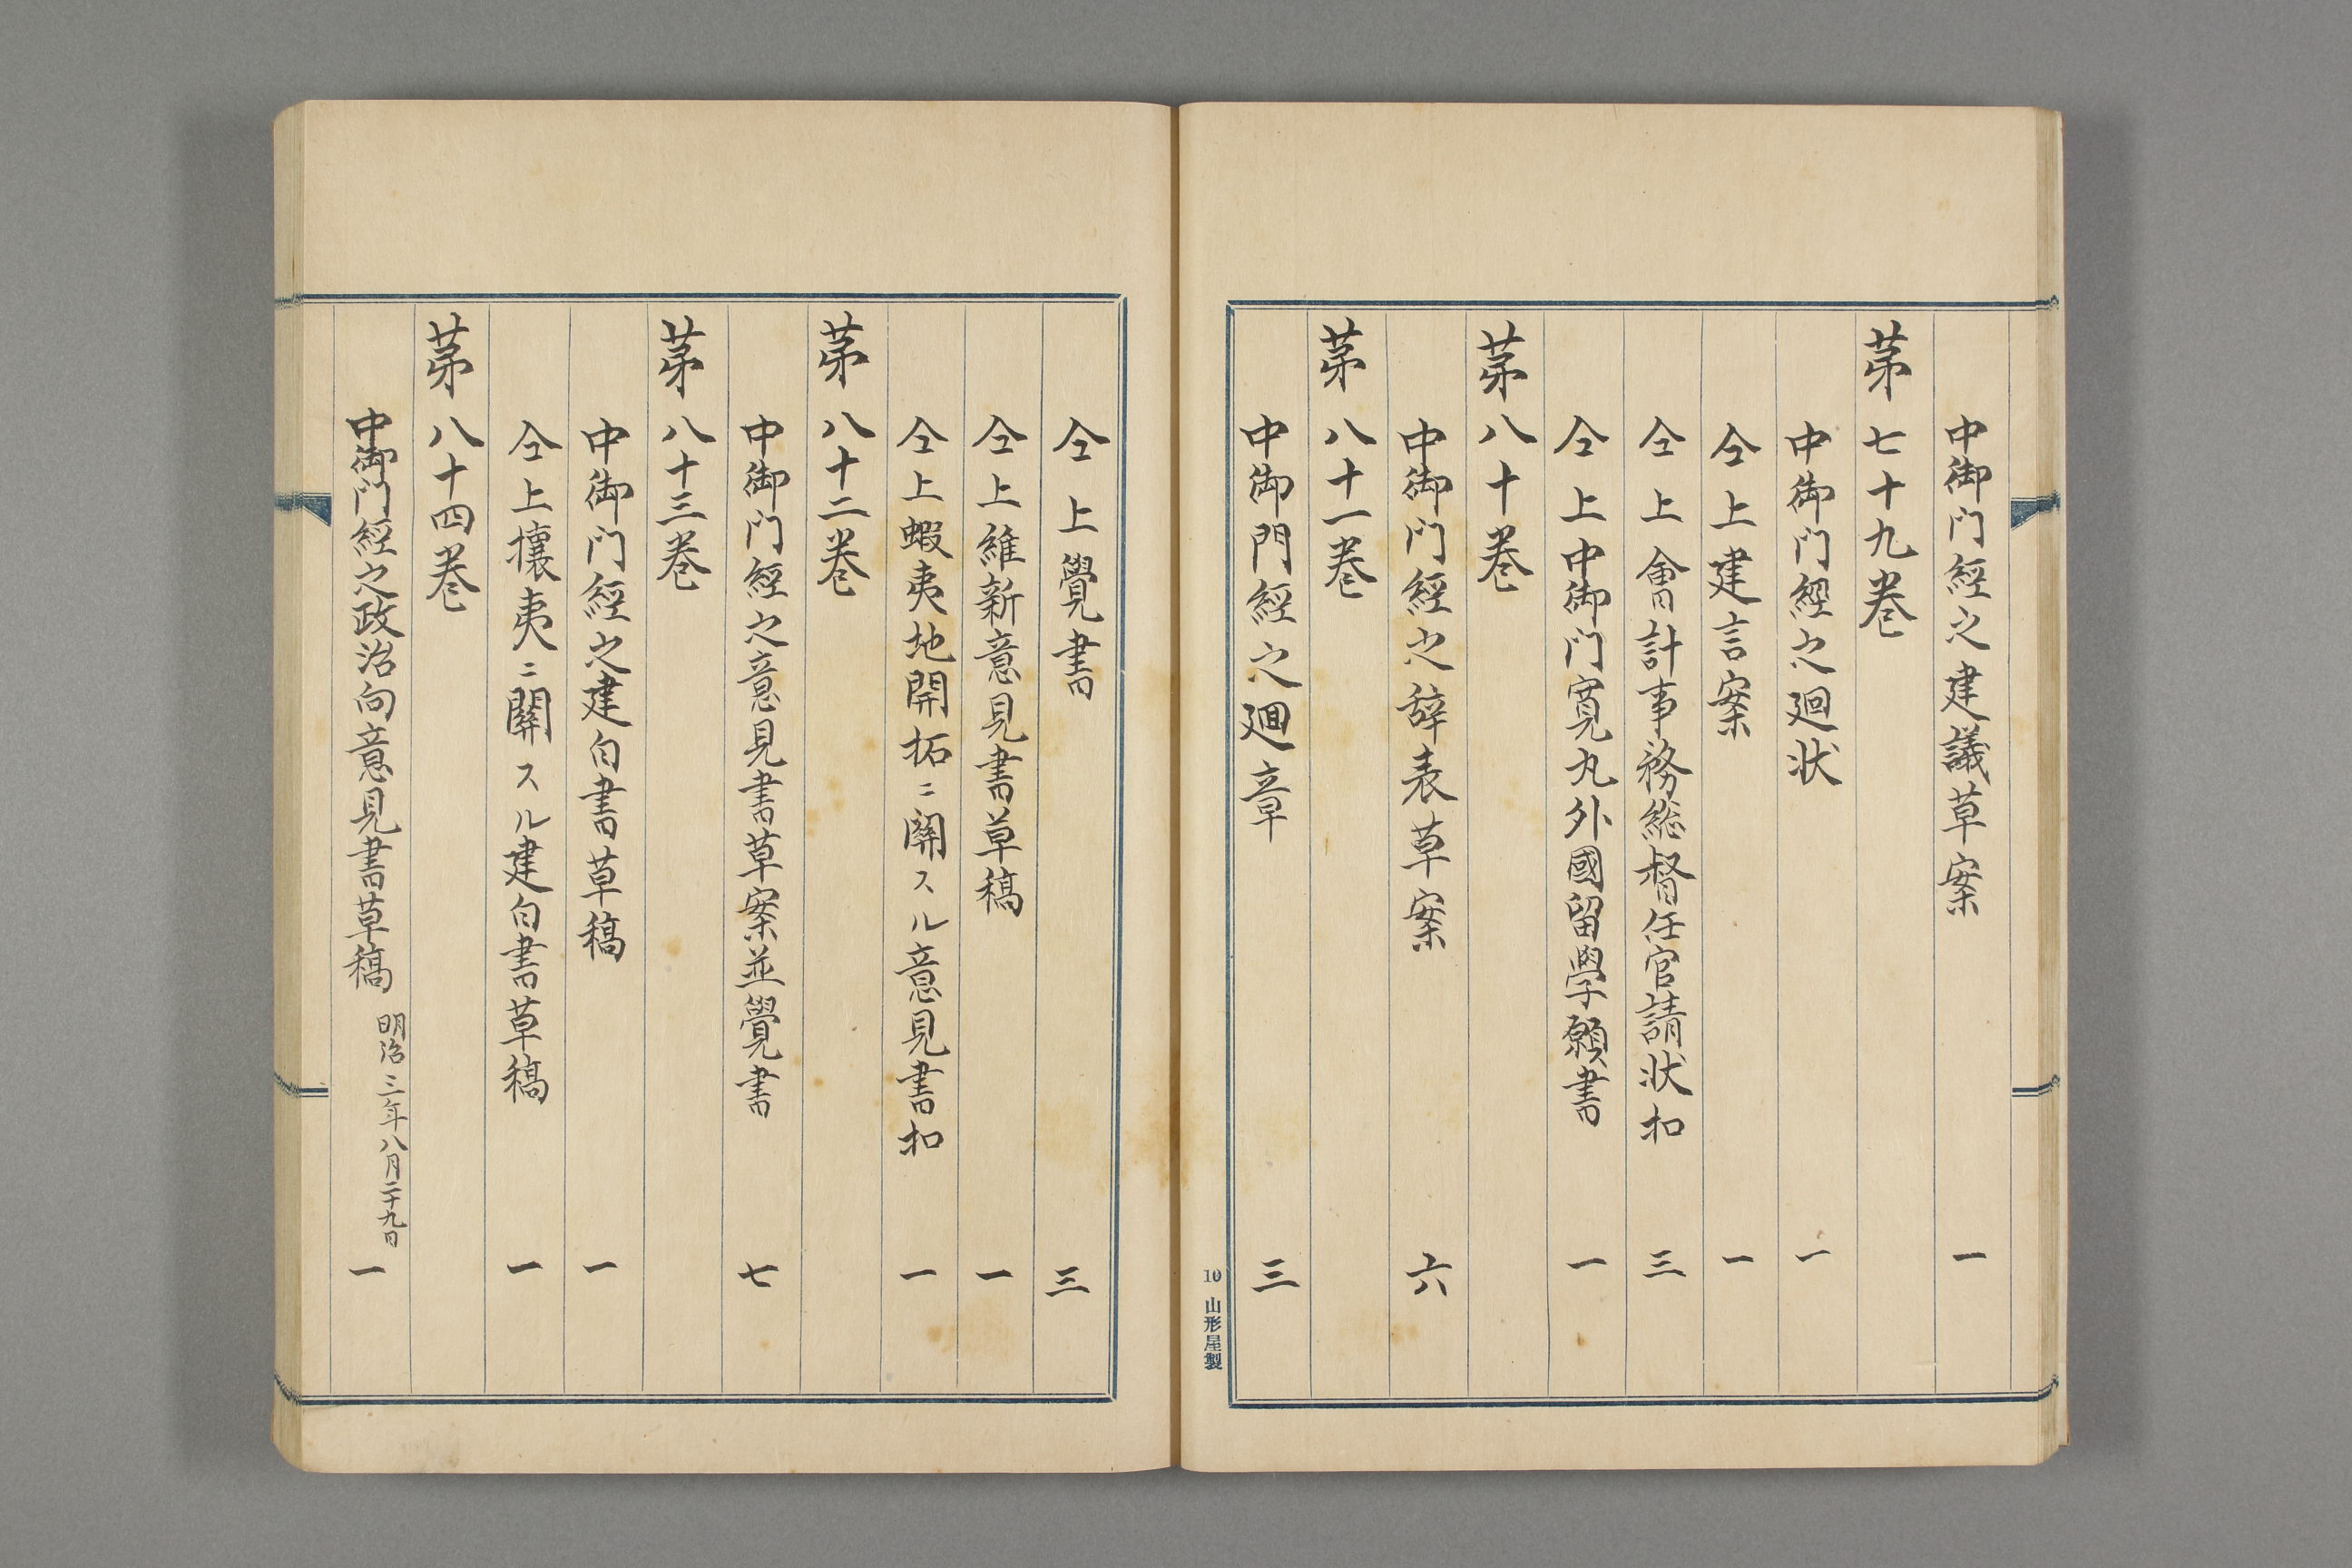 中御门經之建議草案 一
苐七十九巻
中御门經之廻状 一
仝上建言案 一
仝上會計事務総督任官請状扣 三
仝上中御门寛丸外國留學願書 一
苐八十巻
中御门經之辞表草案 六
苐八十一巻
中御門經之廻章 三
10 山形屋製
仝上覺書 三
仝上維新意見書草稿 一
仝上蝦夷地開拓ニ関スル意見書扣 一
苐八十二巻
中御门經之意見書草案並覺書 七
苐八十三巻
中御门經之建白書草稿 一
仝上攘夷ニ関スル建白書草稿 一
苐八十四巻
中御门經之政治向意見書草稿 明治三年八月二十九日 一